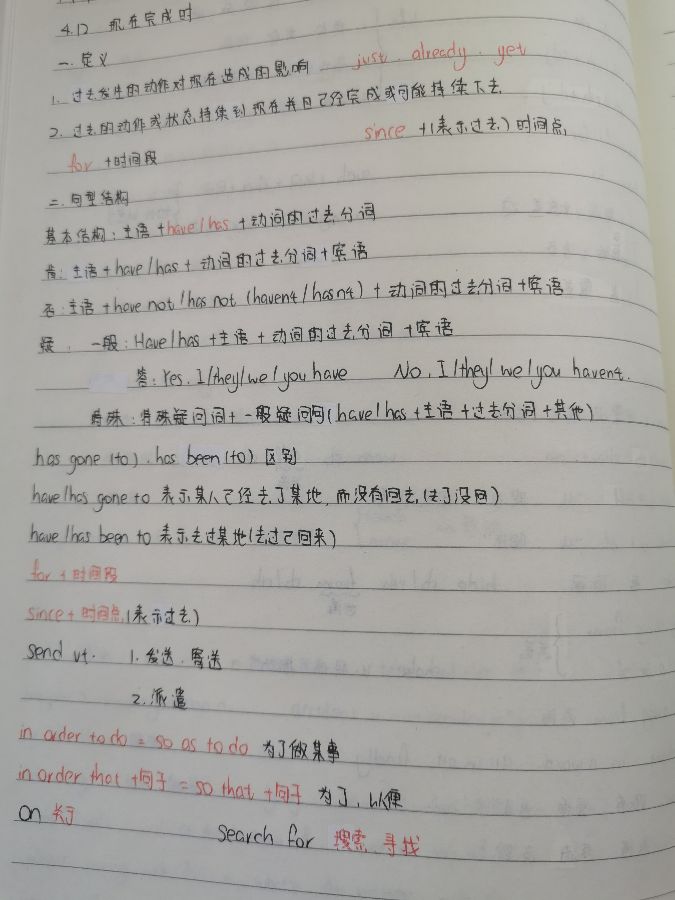 4.12 现在完成时
一.定义
1. 过去发生的动作对现在造成的影响 just . already . yet
2. 过去的动作或状态持续到现在并且已经完成或可能持续下去
for +时间段 since +(表示过去)时间点
二.句型结构
基本结构:主语+have/has+动词的过去分词
肯:主语+have/has+动词的过去分词+宾语
否:主语+have not/has not (haven't/hasn't)+动词的过去分词+宾语
疑. 一般:Have/has+主语+动词的过去分词+宾语
答:Yes. I/they/we/you have No. I/they/we/you haven't.
特殊:特殊疑问词+一般疑问句(have/has+主语+过去分词+其他)
has gone (to) . has been (to) 区别
have/has gone to 表示某人已经去了某地,而没有回去(去了没回)
have/has been to 表示去过某地(去过已回来)
for +时间段
since+时间点(表示过去)
send vt. 1.发送.寄送
2.派遣
in order to do = so as to do 为了做某事
in order that +句子 = so that +句子 为了,以便
on 关于 Search for 搜索.寻找